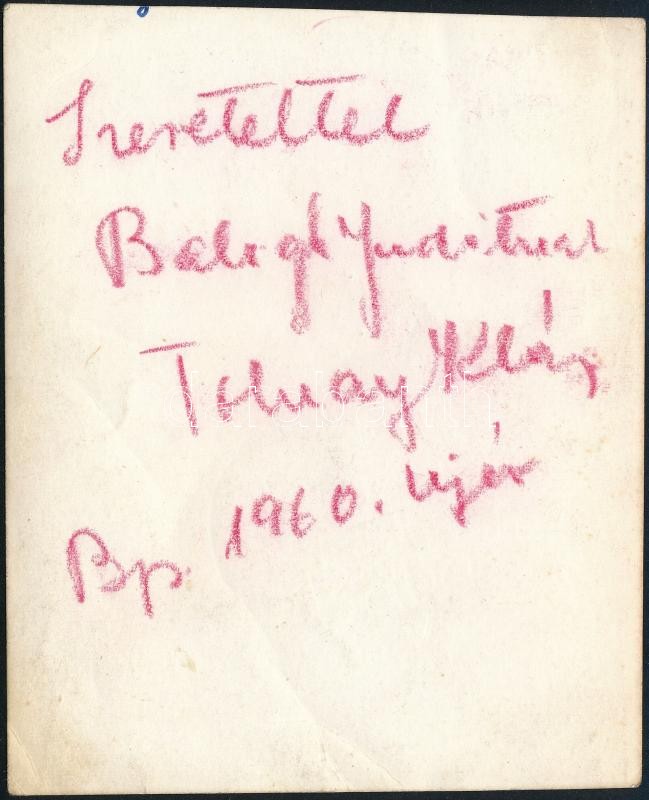 Szeretettel
Balogh Juditnak
Tolnay Klári
Bp. 1960. ujév